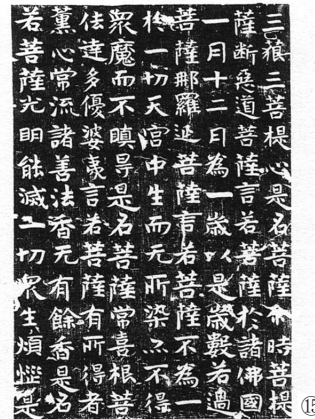 三藐三菩提心是名菩薩尒時菩提
薩斷惡道菩薩言若菩薩於諸佛國
一月十二月為一歲以是歲數若過
菩薩那羅延菩薩言若菩薩不為一
扵一切天宮中生而无所染亦不得
眾魔而不瞋㝵是名菩薩常喜根菩
達多優婆夷言若菩薩有所得者
薰心常流諸善法香无有餘香是名
若菩薩光明能滅一切眾生煩惱是
⑮